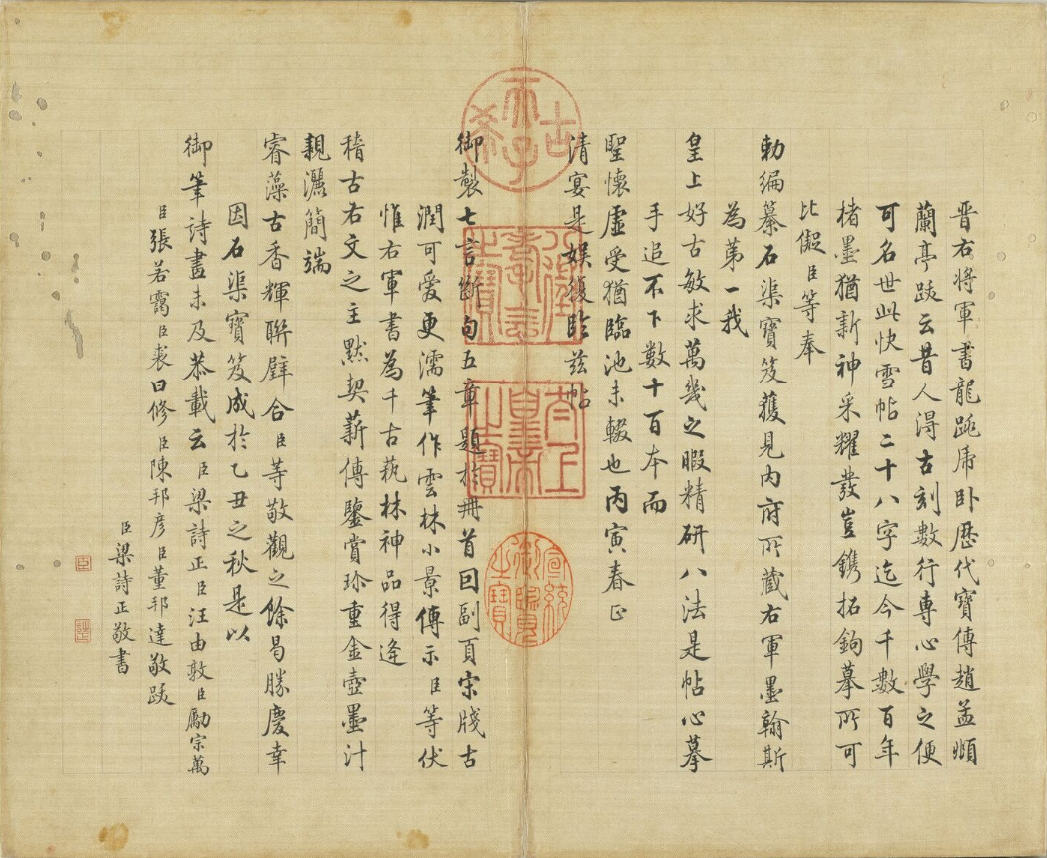 晉右將軍書龍跳虎卧歷代寶傳趙孟頫
蘭亭跋云昔人得古刻數行專心學之便
可名世此快雪帖二十八字迄今千數百年
楮墨猶新神采耀發豈鐫拓鉤摹所可
比儗臣等奉
勅編纂石渠寶笈獲見內府所藏右軍墨翰斯
為苐一我
皇上好古敏求萬幾之暇精研八法是帖心摹
手追不下數十百本而
聖懷虛受猶臨池未輟也丙寅春正
清宴是娛復臨茲帖
御製七言斷句五章題於冊首回副頁宋牋古
潤可愛更濡筆作雲林小景傳示臣等伏
惟右軍書為千古蓺林神品得逢
稽古右文之主默契薪傳鑒賞珍重金壺墨汁
親灑簡端
睿藻古香輝聯璧合臣等敬觀之餘曷勝慶幸
因石渠寶笈成於乙丑之秋是以
御筆詩畫未及恭載云臣梁詩正臣汪由敦臣勵宗萬
臣張若靄臣裘曰修臣陳邦彥臣董邦達敬跋
臣梁詩正敬書
古希天子
八徵耄念之寶
太上皇帝之寶
宣統御覽之寶
臣